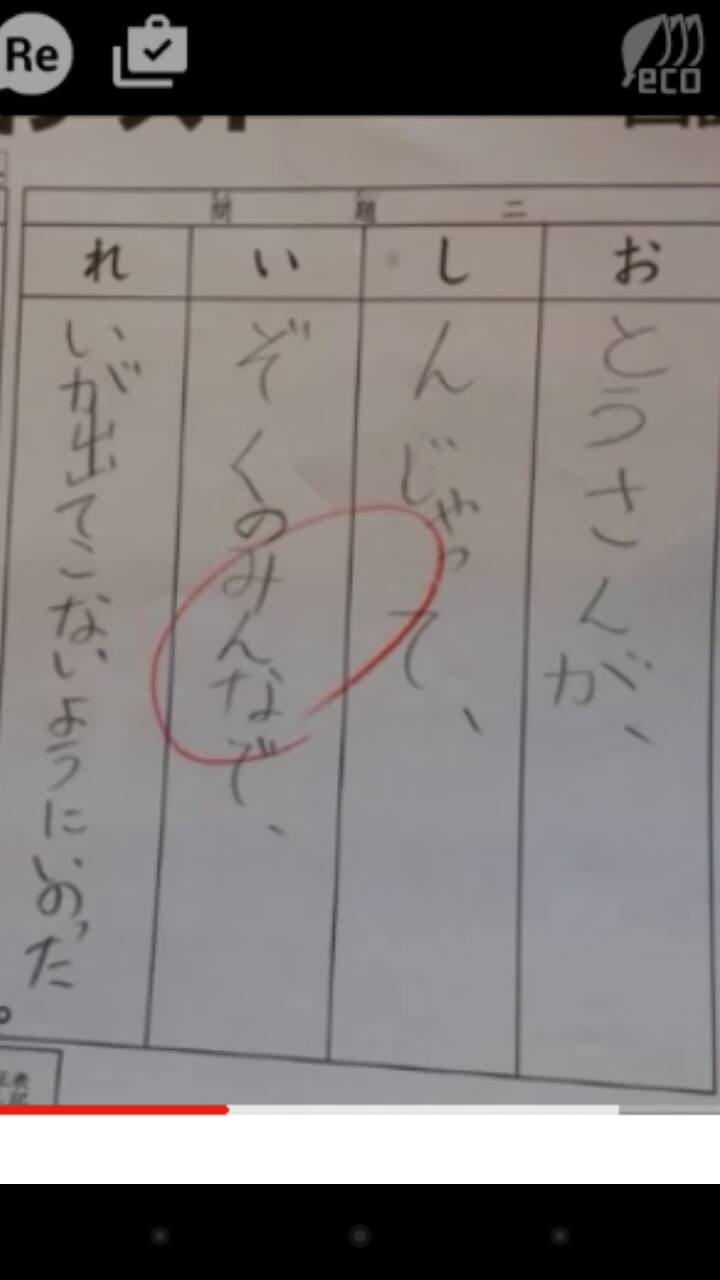 Re
eco
問題二
おとうさんが、
しんじゃって、
いぞくのみんなで、
れいが出てこないようにいのった。